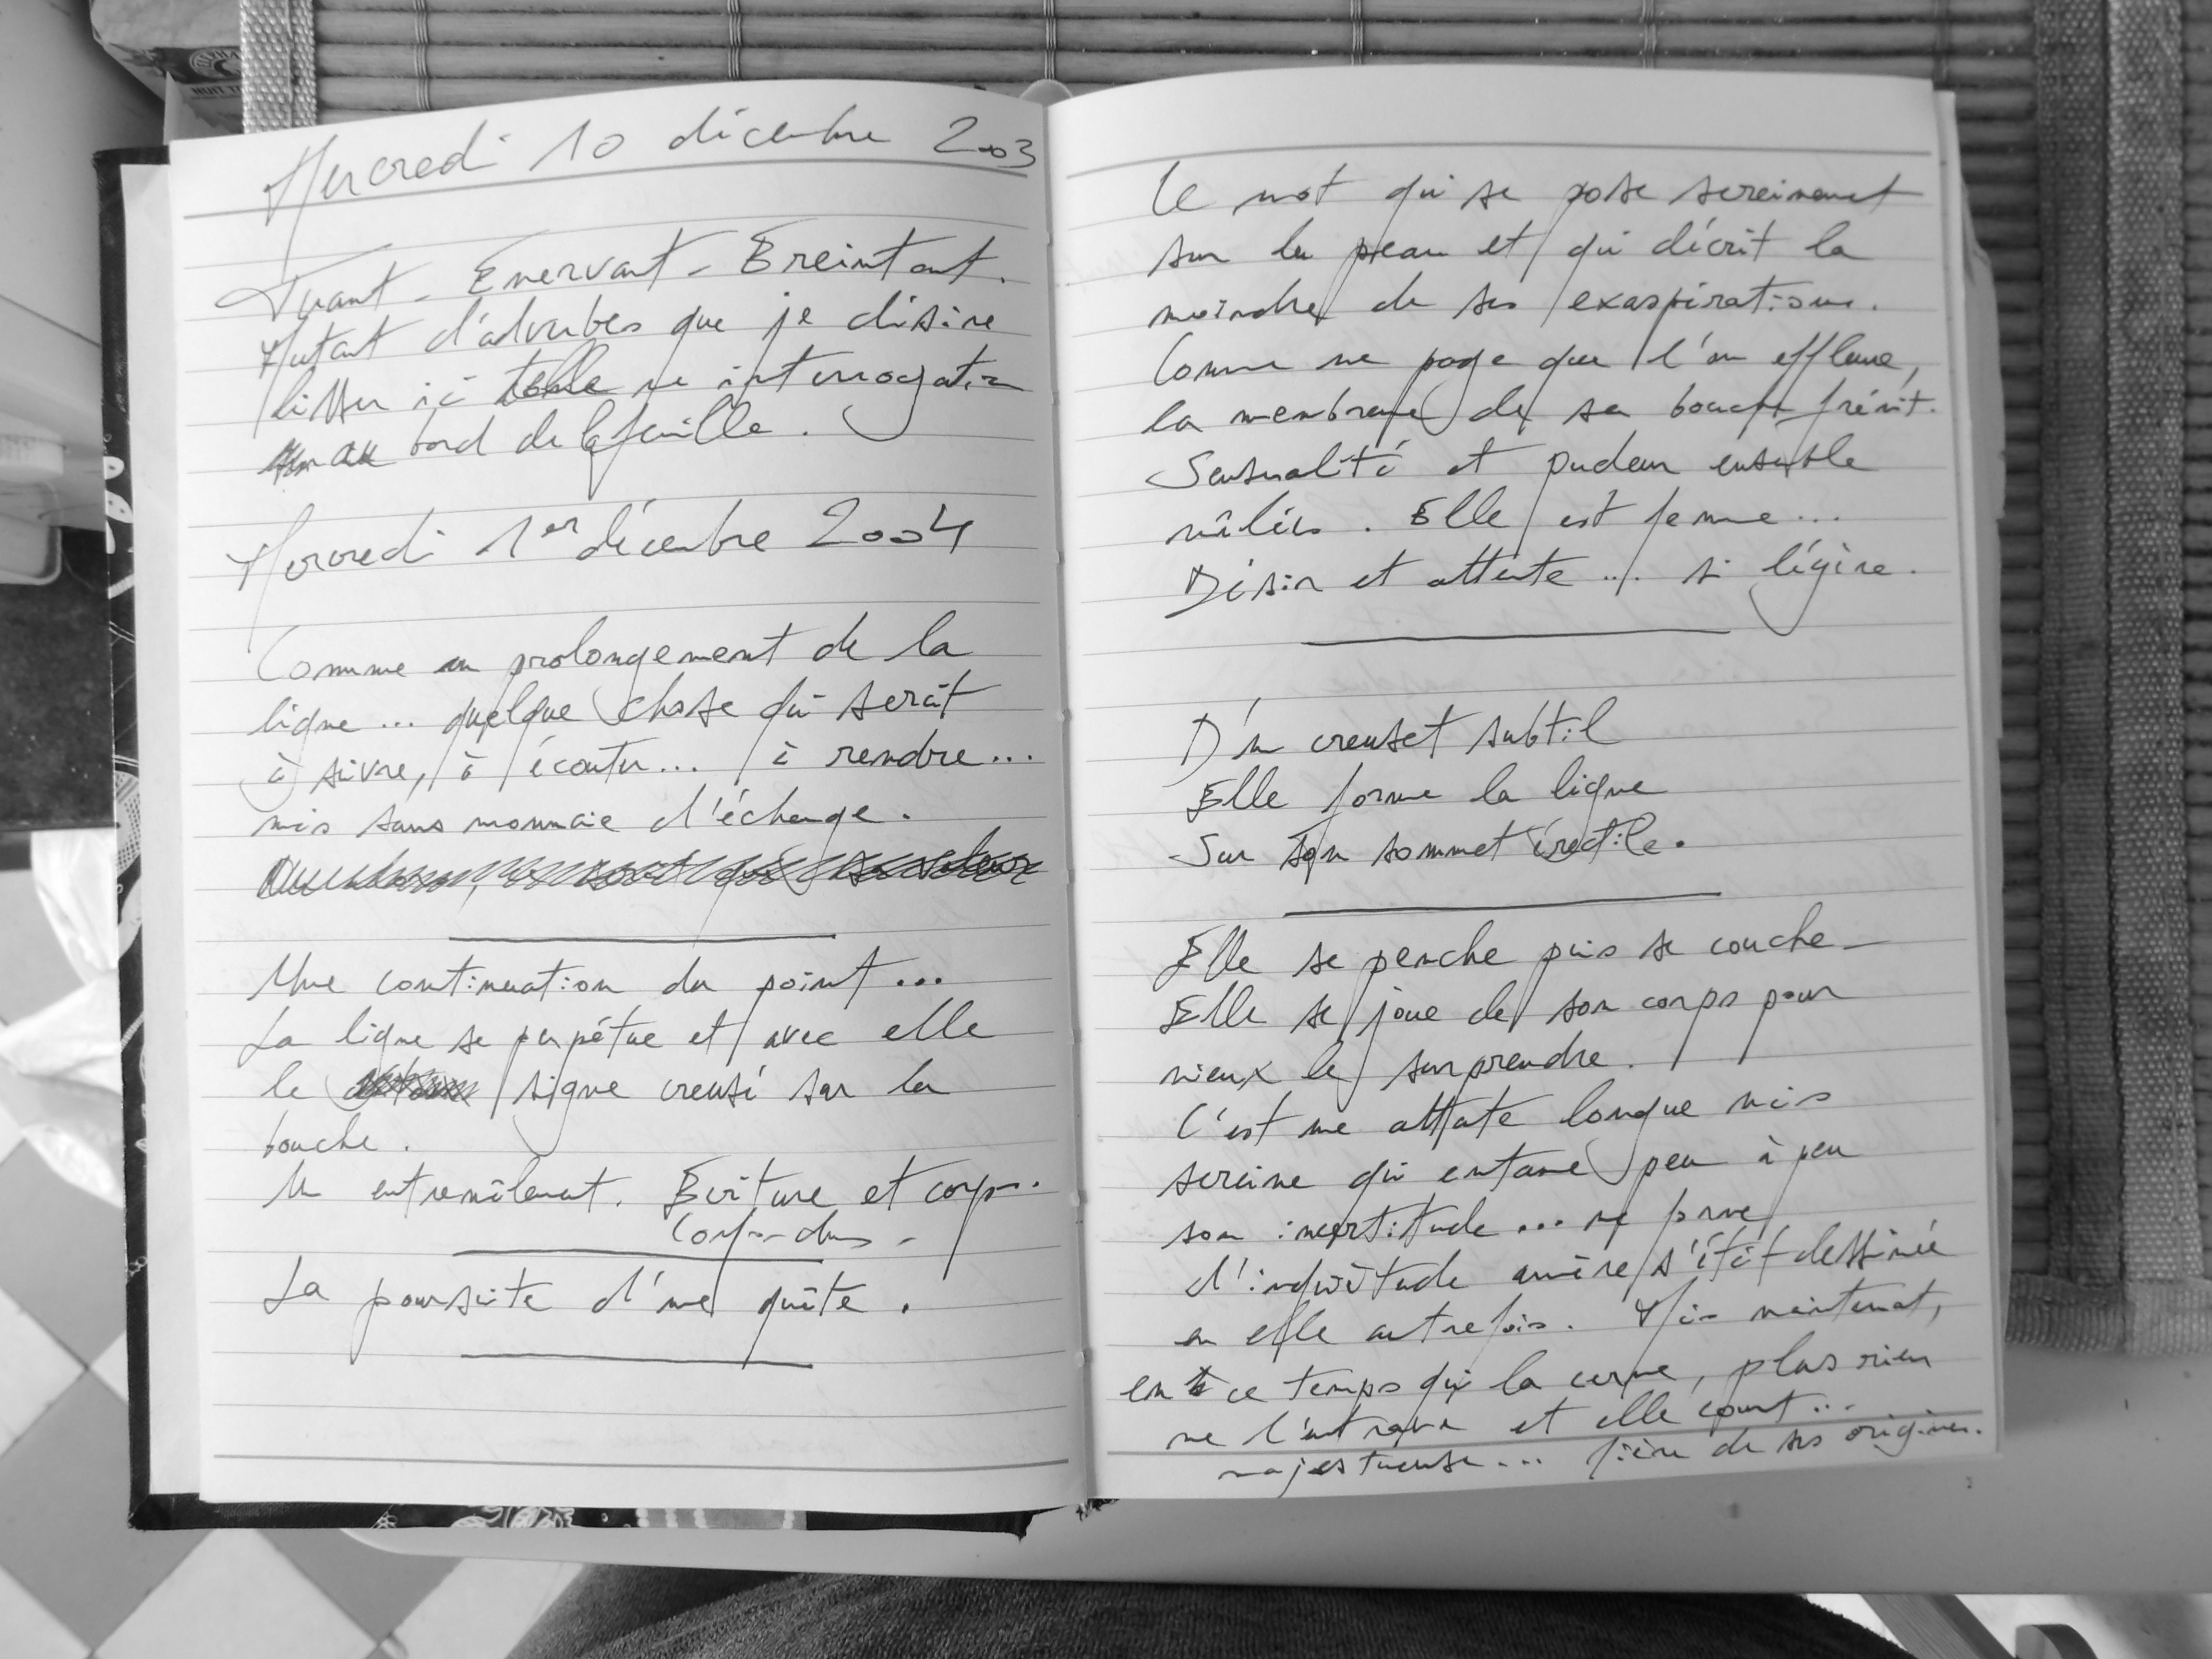 Mercredi 10 décembre 2003
Tuant - Enervant - Ereintant.
Autant d'adverbes que je désire
lister ici telle une interrogation
au bord de la feuille.
Mercredi 1er décembre 2004
Comme un prolongement de la
ligne... quelque chose qui serait
à suivre, à écouter... à rendre...
mais sans monnaie d'échange.
Une continuation du point...
La ligne se perpétue et avec elle
le signe creusé sur la
bouche.
Un entremêlement. Ecriture et corps.
Confondus.
La poursuite d'une quête.
Le mot qui se pose sereinement
sur la peau et qui décrit la
moindre de ses exaspérations.
Comme une page que l'on effleure,
la membrane de sa bouche frémit.
Sensualité et pudeur ensemble
mêlées. Elle est femme...
Désir et attente... si légère.
D'un creuset subtil
Elle forme la ligne
Sur son sommet érectile.
Elle se penche puis se couche -
Elle se joue de son corps pour
mieux le surprendre.
C'est une attente longue mais
sereine qui entame peu à peu
son incertitude... une
d'inquiétude amère s'était dessinée
en elle autrefois. Mais maintenant,
en ce temps qui la cerne, plus rien
ne l'entrave et elle court...
majestueuse... fière de ses origines.